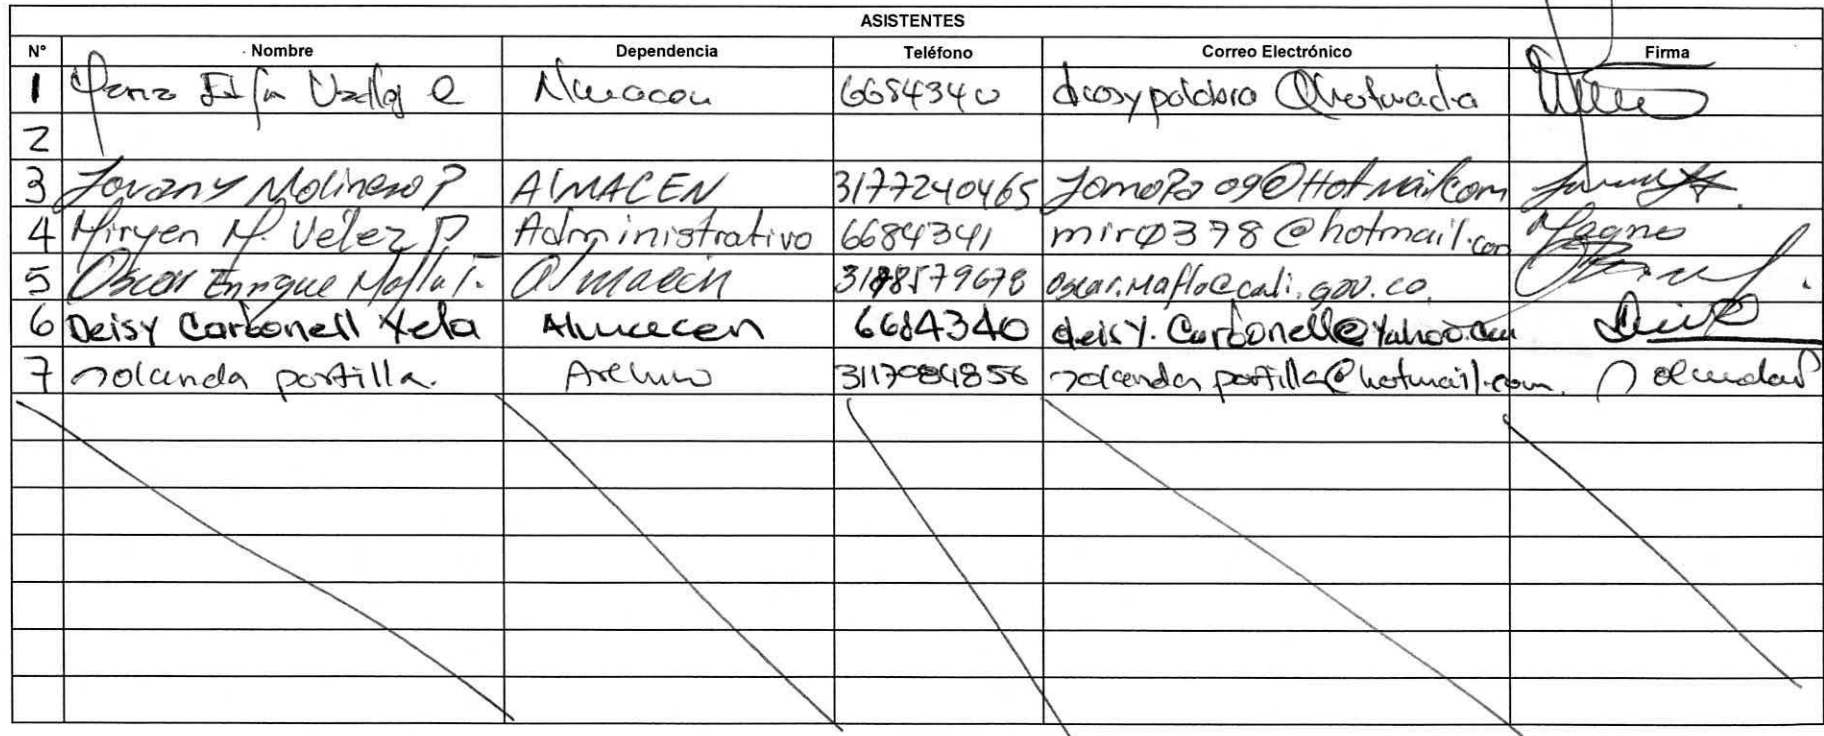 ASISTENTES
N° Nombre Dependencia Teléfono Correo Electrónico Firma
1 6684340
2
3 Jovany Molinero P ALMACEN 3177240465 Jomopa09@Hotmail.com
4 Miryen M. Vélez P. Administrativo 6684341 mir0378@hotmail.com Magno
5 Oscar Enrique Maflа T. Almacén oscar.maflo@cali.gov.co.
6 Deisy Carbonell Yela Almacen 6684340 deisy.Carbonell@yahoo.com
7 Yolanda portilla. Archivo 3117084856 yolanda portilla@hotmail.com.